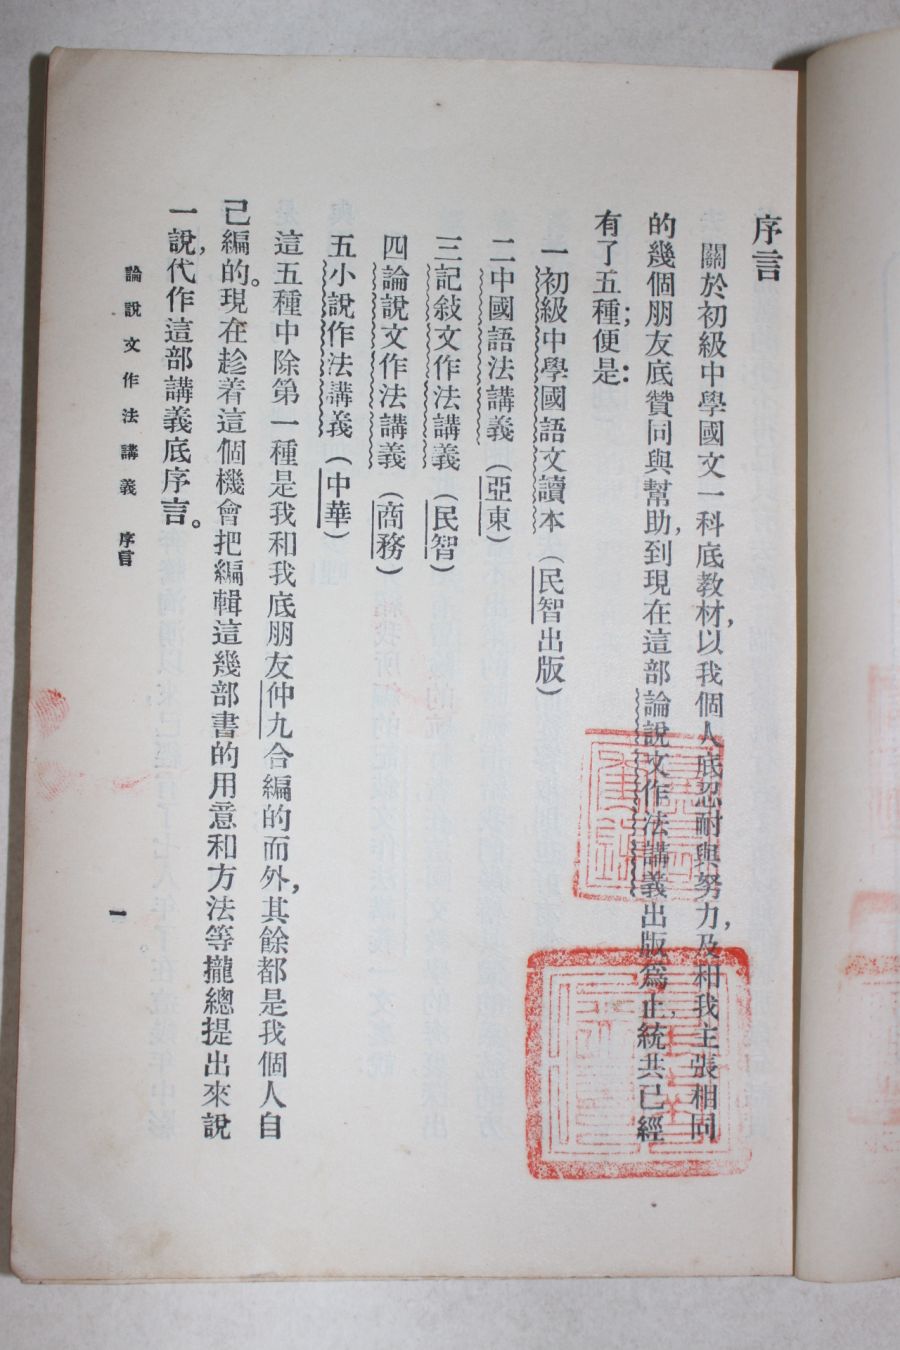 序言
關於初級中學國文一科底教材，以我個人底忍耐與努力，及和我主張相同
的幾個朋友底贊同與幫助，到現在這部論說文作法講義出版爲止，統共已經
有了五種；便是：
一初級中學國語文讀本（民智出版）
二中國語法講義（亞東）
三記敍文作法講義（民智）
四論說文作法講義（商務）
五小說作法講義（中華）
這五種中除第一種是我和我底朋友仲九合編的而外，其餘都是我個人自
己編的。現在趁着這個機會把編輯這幾部書的用意和方法等攏總提出來說
一說，代作這部講義底序言。
論說文作法講義 序言
一